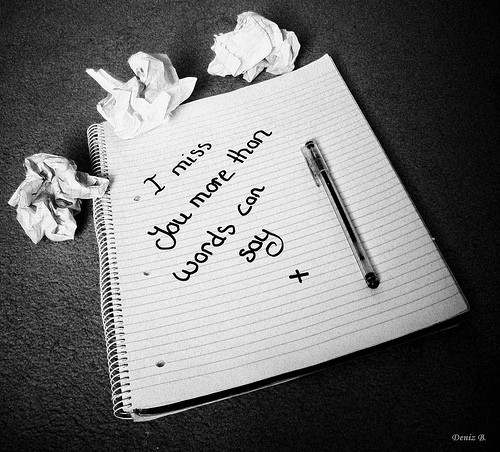 I miss
You more than
words can
say
x
Deniz B.